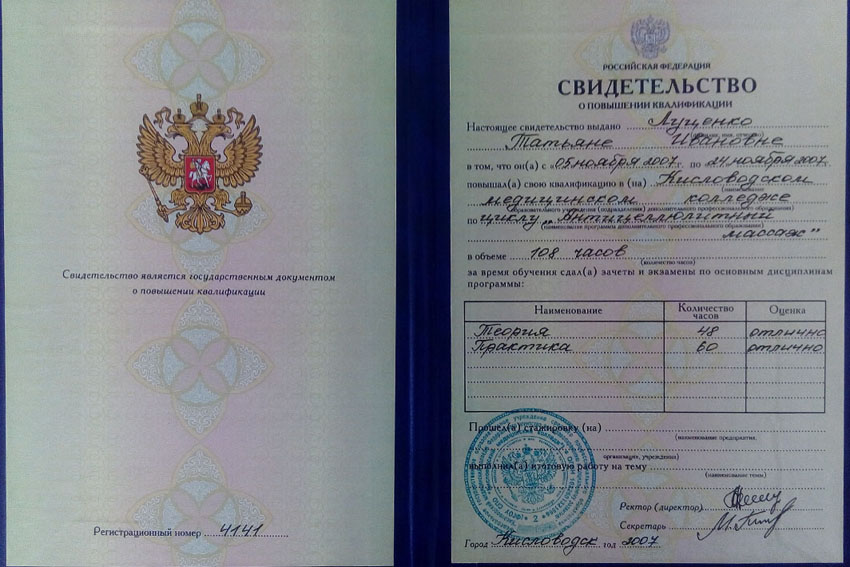 Свидетельство является государственным документом
о повышении квалификации
Регистрационный номер 4141
РОССИЙСКАЯ ФЕДЕРАЦИЯ
СВИДЕТЕЛЬСТВО
О ПОВЫШЕНИИ КВАЛИФИКАЦИИ
Настоящее свидетельство выдано Луценко
Татьяне Ивановне
в том, что он(а) с «05 ноября 2007 г. по 24 ноября 2007
повышал(а) свою квалификацию в (на) Кисловодском
(наименование
медицинском колледже
образовательного учреждения (подразделения) дополнительного профессионального образования)
по циклу „Антицеллюлитный
(наименование программы дополнительного профессионального образования)
массаж"
в объеме 108 часов
(количество часов)
за время обучения сдал(а) зачеты и экзамены по основным дисциплинам
программы:
Наименование Количество часов Оценка
Теория 48 отлично
Практика 60 отлично
Прошел(а) стажировку (на)
(наименование предприятия,
организации, учреждения)
выполнил(а) итоговую работу на тему
(наименование темы)
Ректор (директор)
Секретарь
Город Кисловодск год 2007